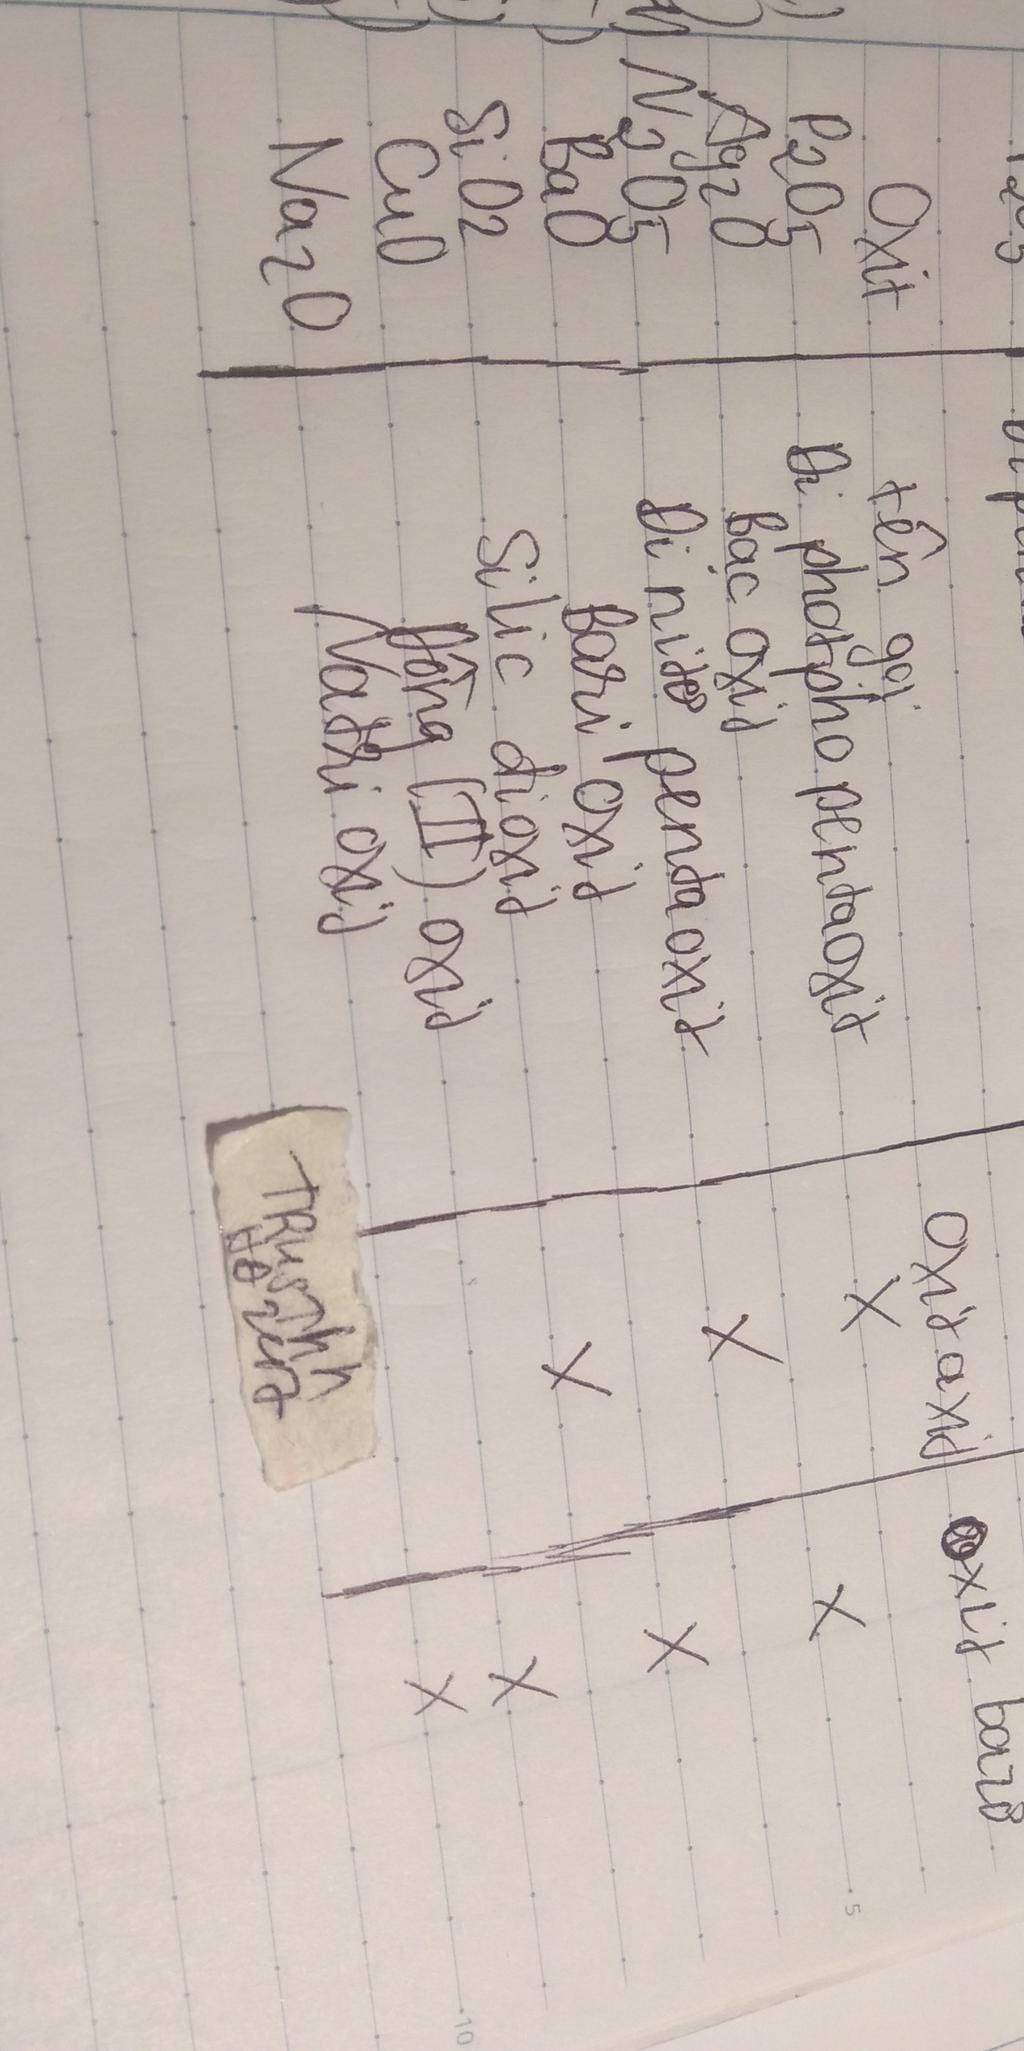 Oxit tên gọi oxit axid oxit bazơ
P2O5 Đi photpho pentaoxit X
Ag2O Bạc oxid X
N2O5 Đi nitơ pentaoxit X
BaO Bari oxid X
SiO2 Silic dioxid X
CuO Đồng (II) oxid X
Na2O Natri oxid X
5
10